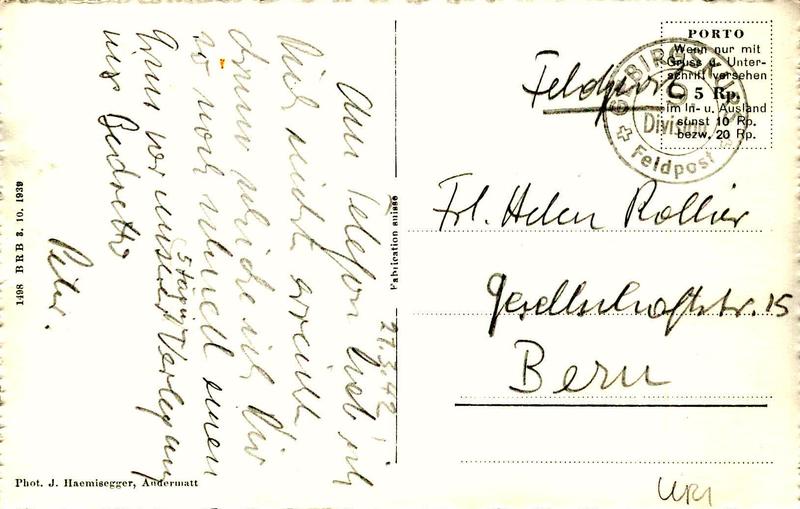 Am Telefon hab ich
Dich nicht erreicht
drum schicke ich Dir
so noch schnell einen
Gruss vor unserer Verlegung
ins Bedretto
Peter.
27.3.42
1498 BRB 3. 10. 1939
Fabrication suisse
Phot. J. Haemisegger, Andermatt
Feldpost
PORTO
Wenn nur mit
Gruss u. Unter-
schrift versehen
5 Rp.
im In- u. Ausland
sonst 10 Rp.
bezw. 20 Rp.
GEBIRGSKURS
9
Division
Feldpost
Frl. Helen Rollier
Gesellschaftstr. 15
Bern
URI